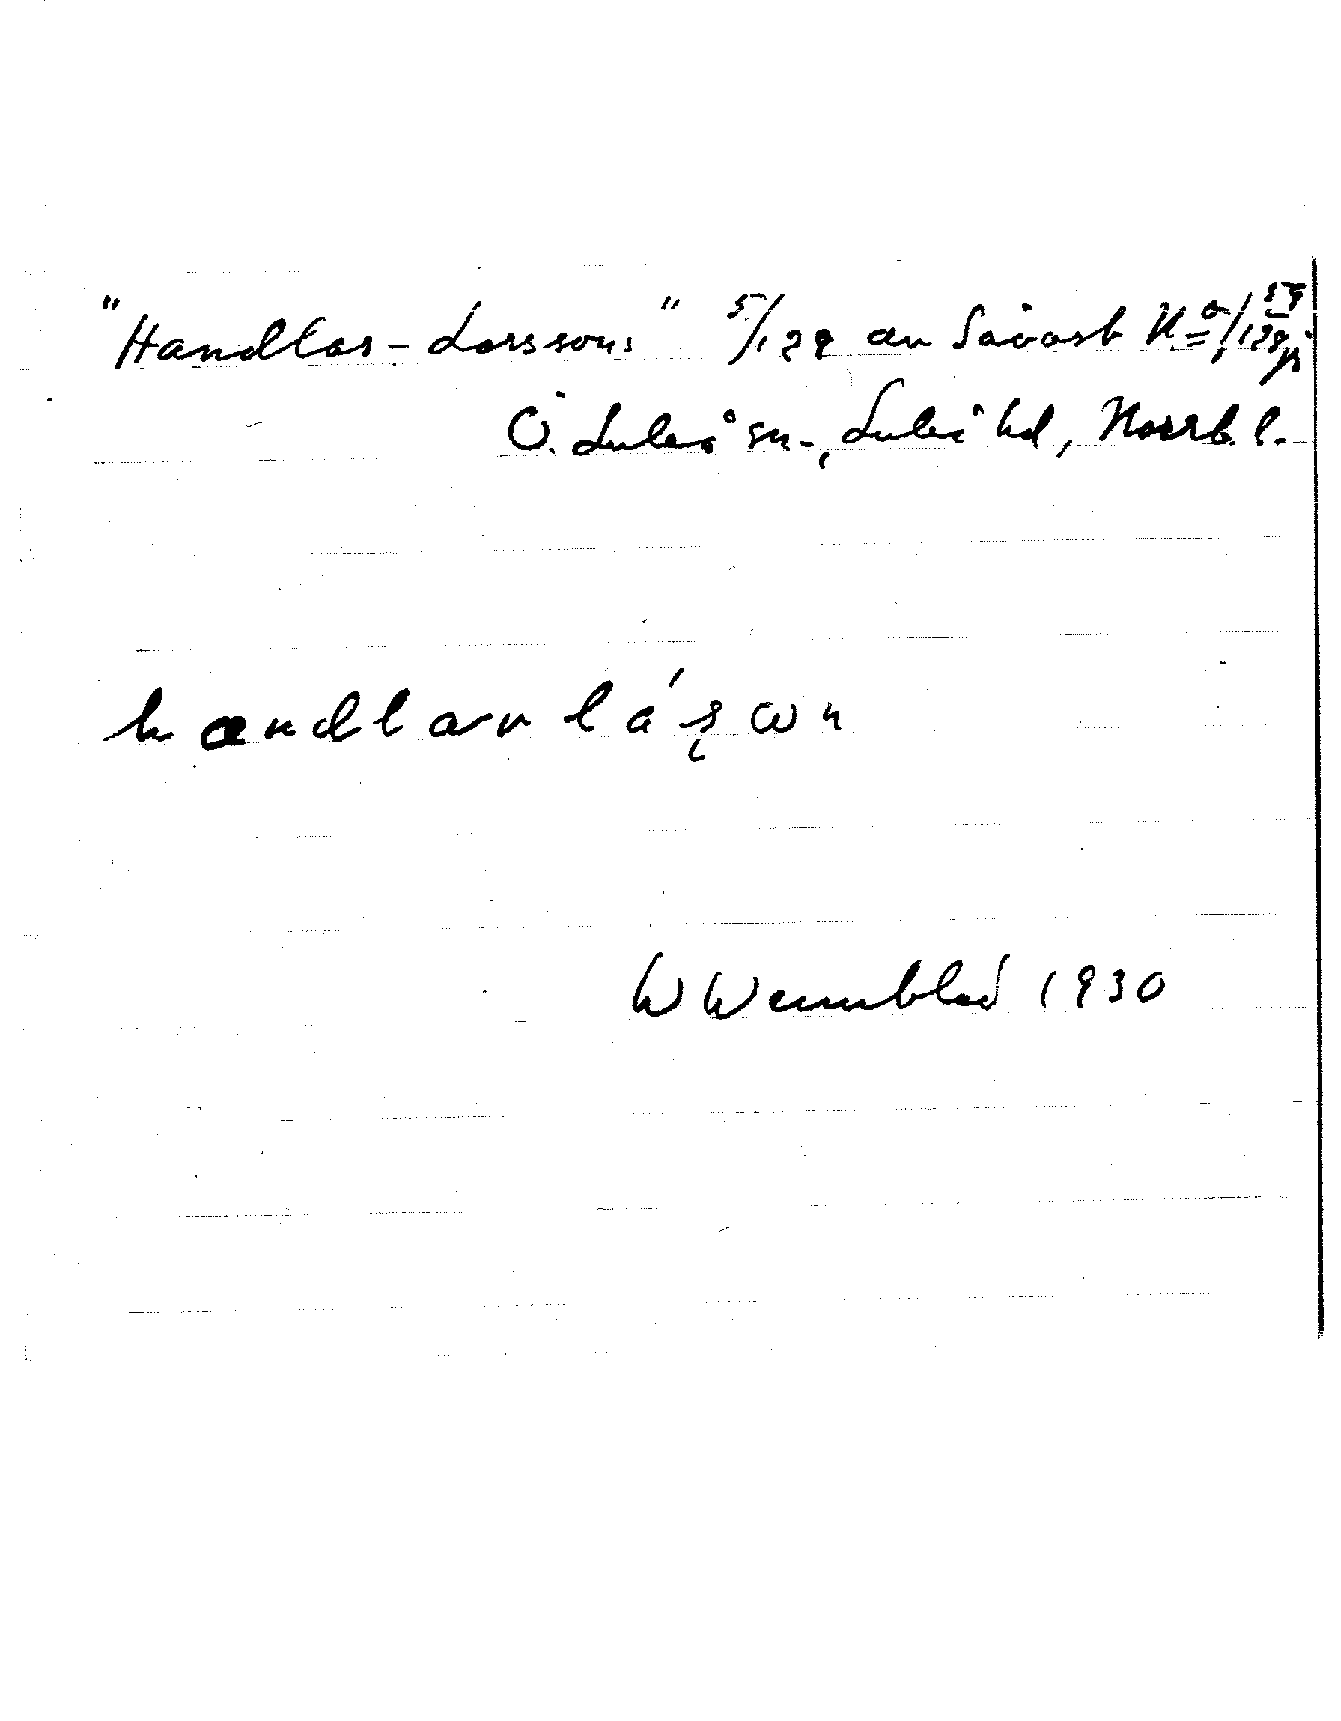 "Handlar-Larssons" 5/128 av Sävast N=o/128
Ö. Luleå sn., Luleå hd, Norrb. l.
handlar láson
W Wennblad 1930